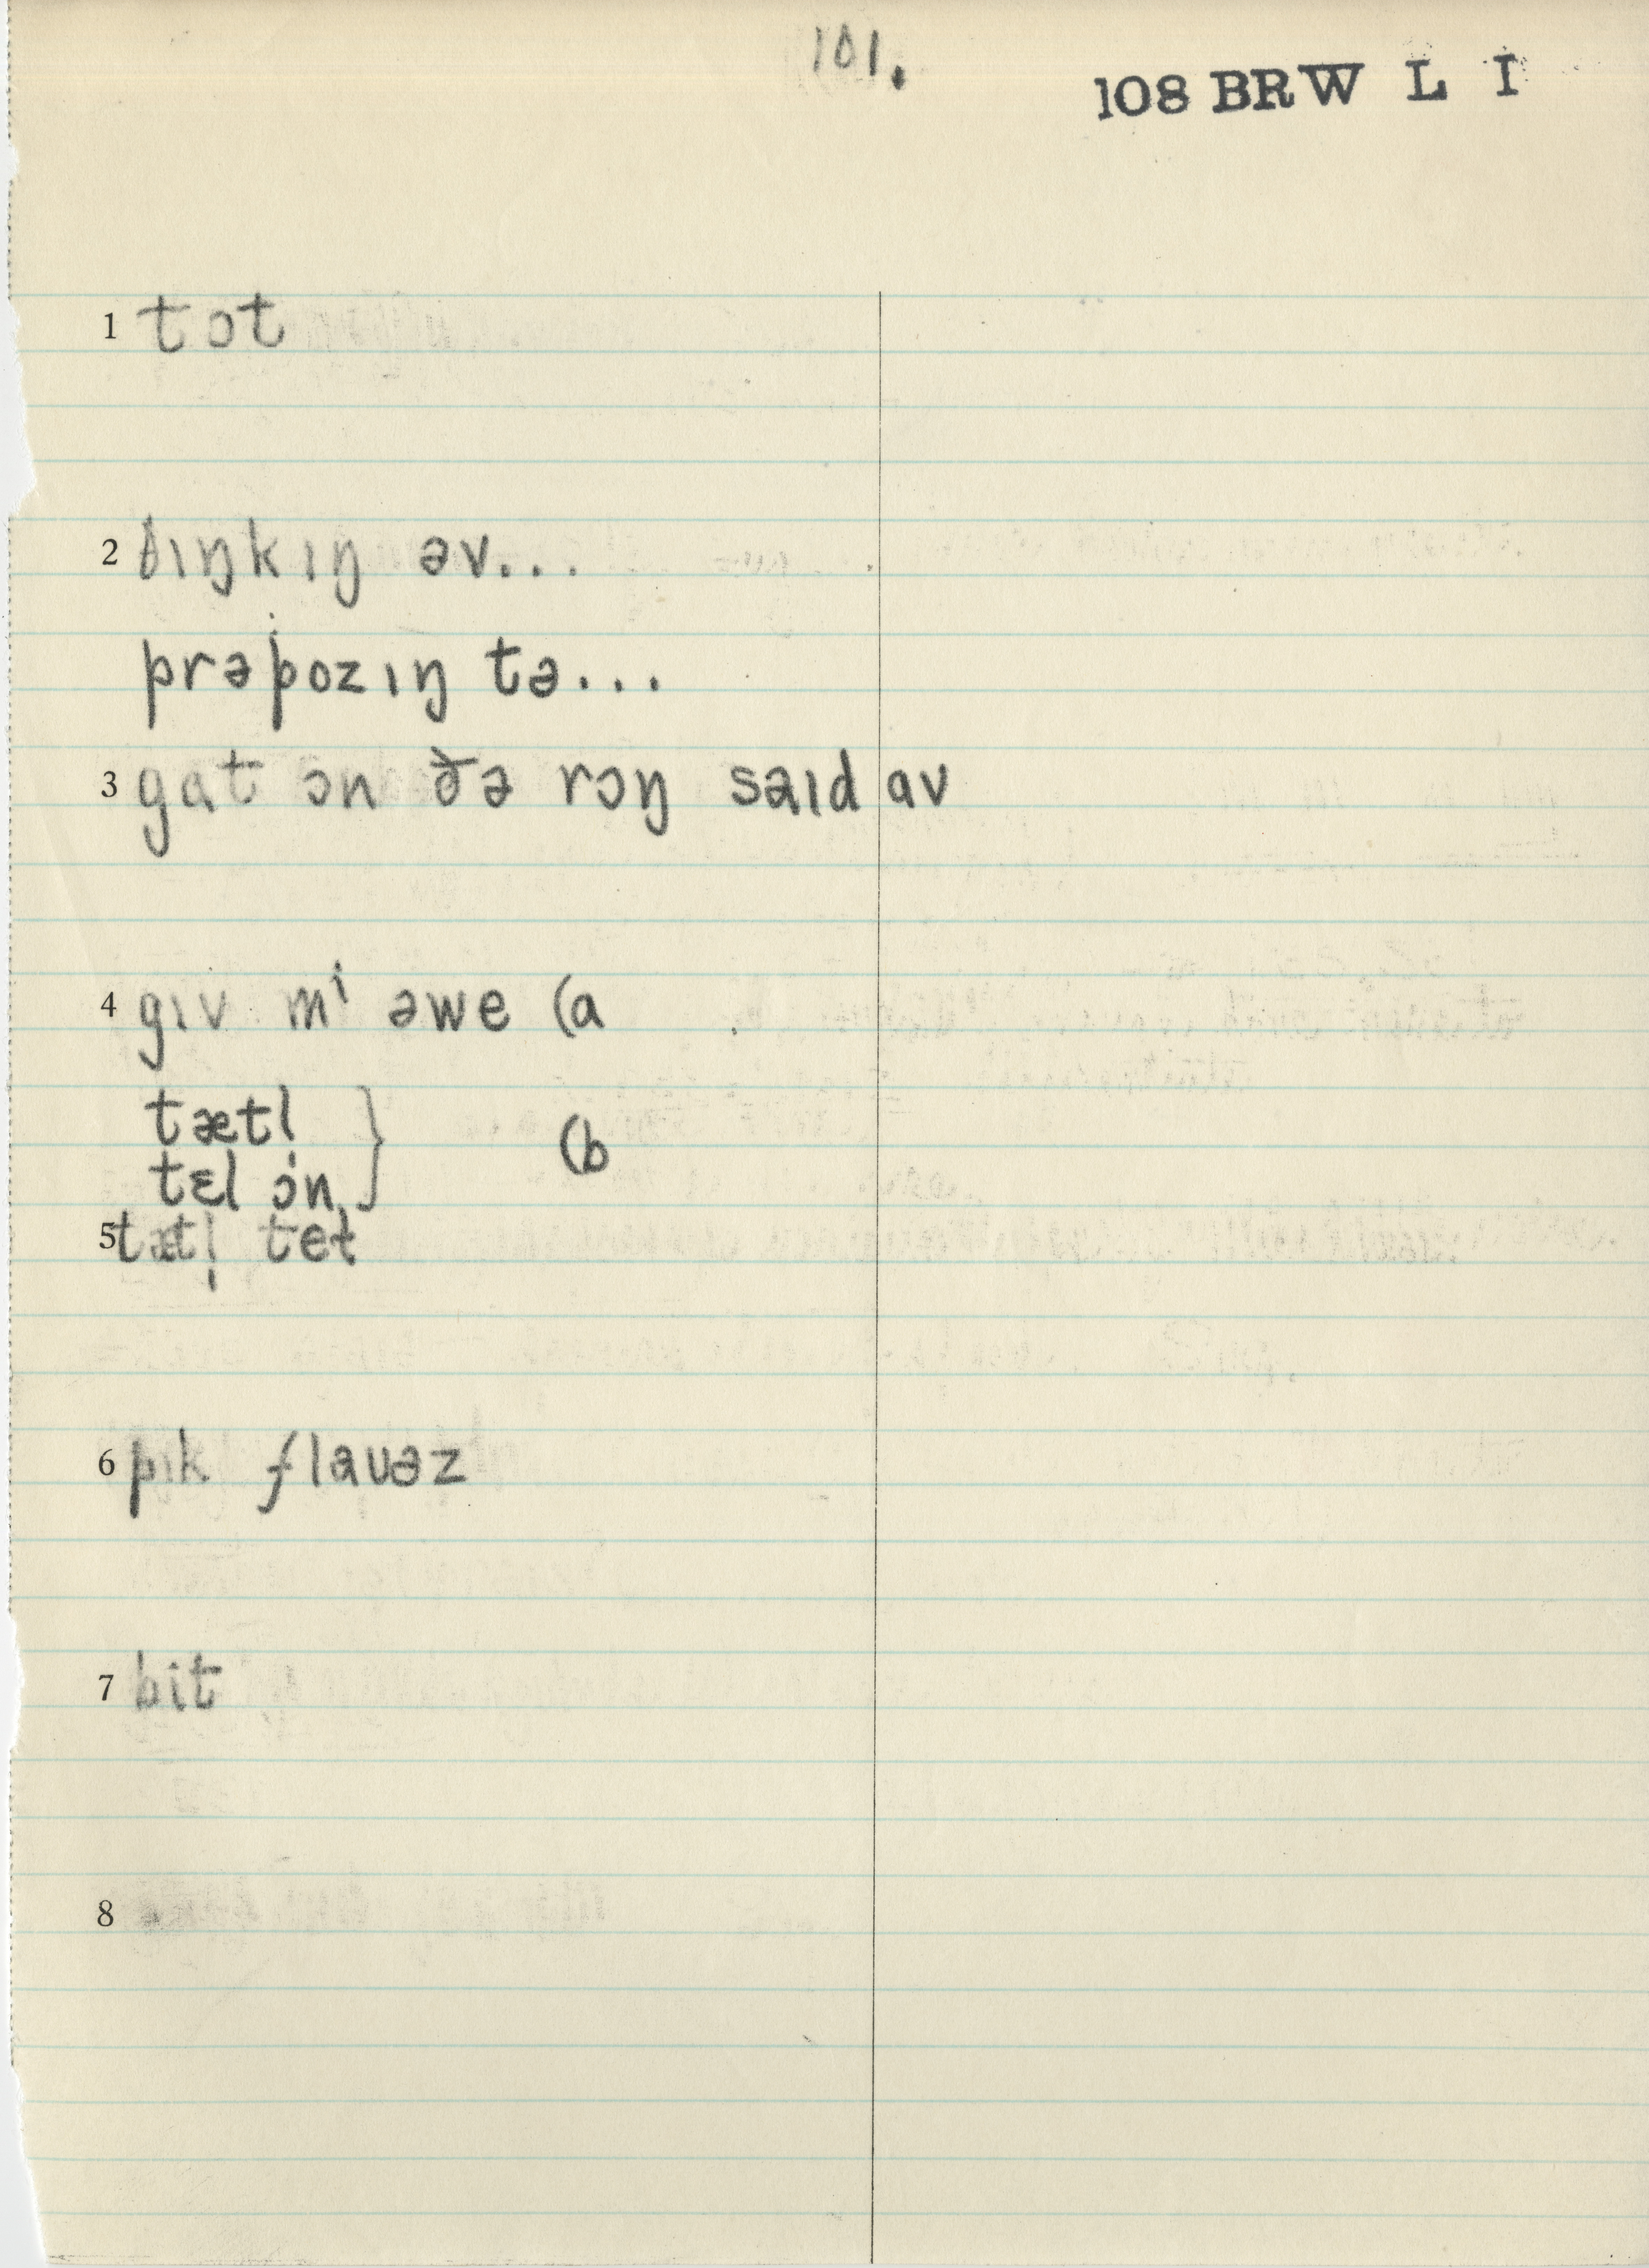 101.
108 BRW L I
1 tɔt
2 θɪŋkɪŋ əv...
prəpozɪŋ tə...
3 gat ɔn ðə rɔŋ saɪd av
4 gɪv mⁱ əwe (a
tætl }
tɛl ɔ'n } (b
5 tætl̩ tet
6 pɪk flaʊəz
7 bit
8